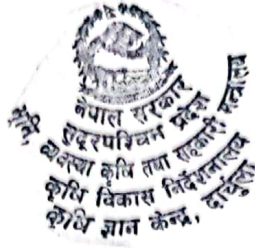 नेपाल सरकार
सुदूरपश्चिम प्रदेश
भूमि, व्यवस्था कृषि तथा सहकारी मन्त्रालय
कृषि विकास निर्देशनालय
कृषि ज्ञान केन्द्र, दार्चुला